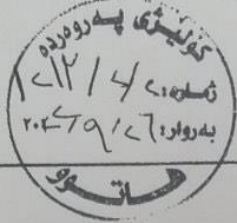 کۆلیژی پەروەردە
ژمارە:
بەروار: ٢٠٢٤/٩/٢٦
هاتوو